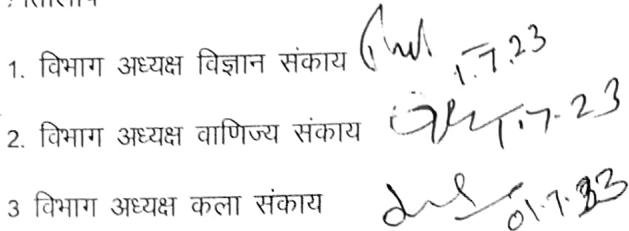 1. विभाग अध्यक्ष विज्ञान संकाय 1.7.23
2. विभाग अध्यक्ष वाणिज्य संकाय 1.7.23
3 विभाग अध्यक्ष कला संकाय 01.7.23